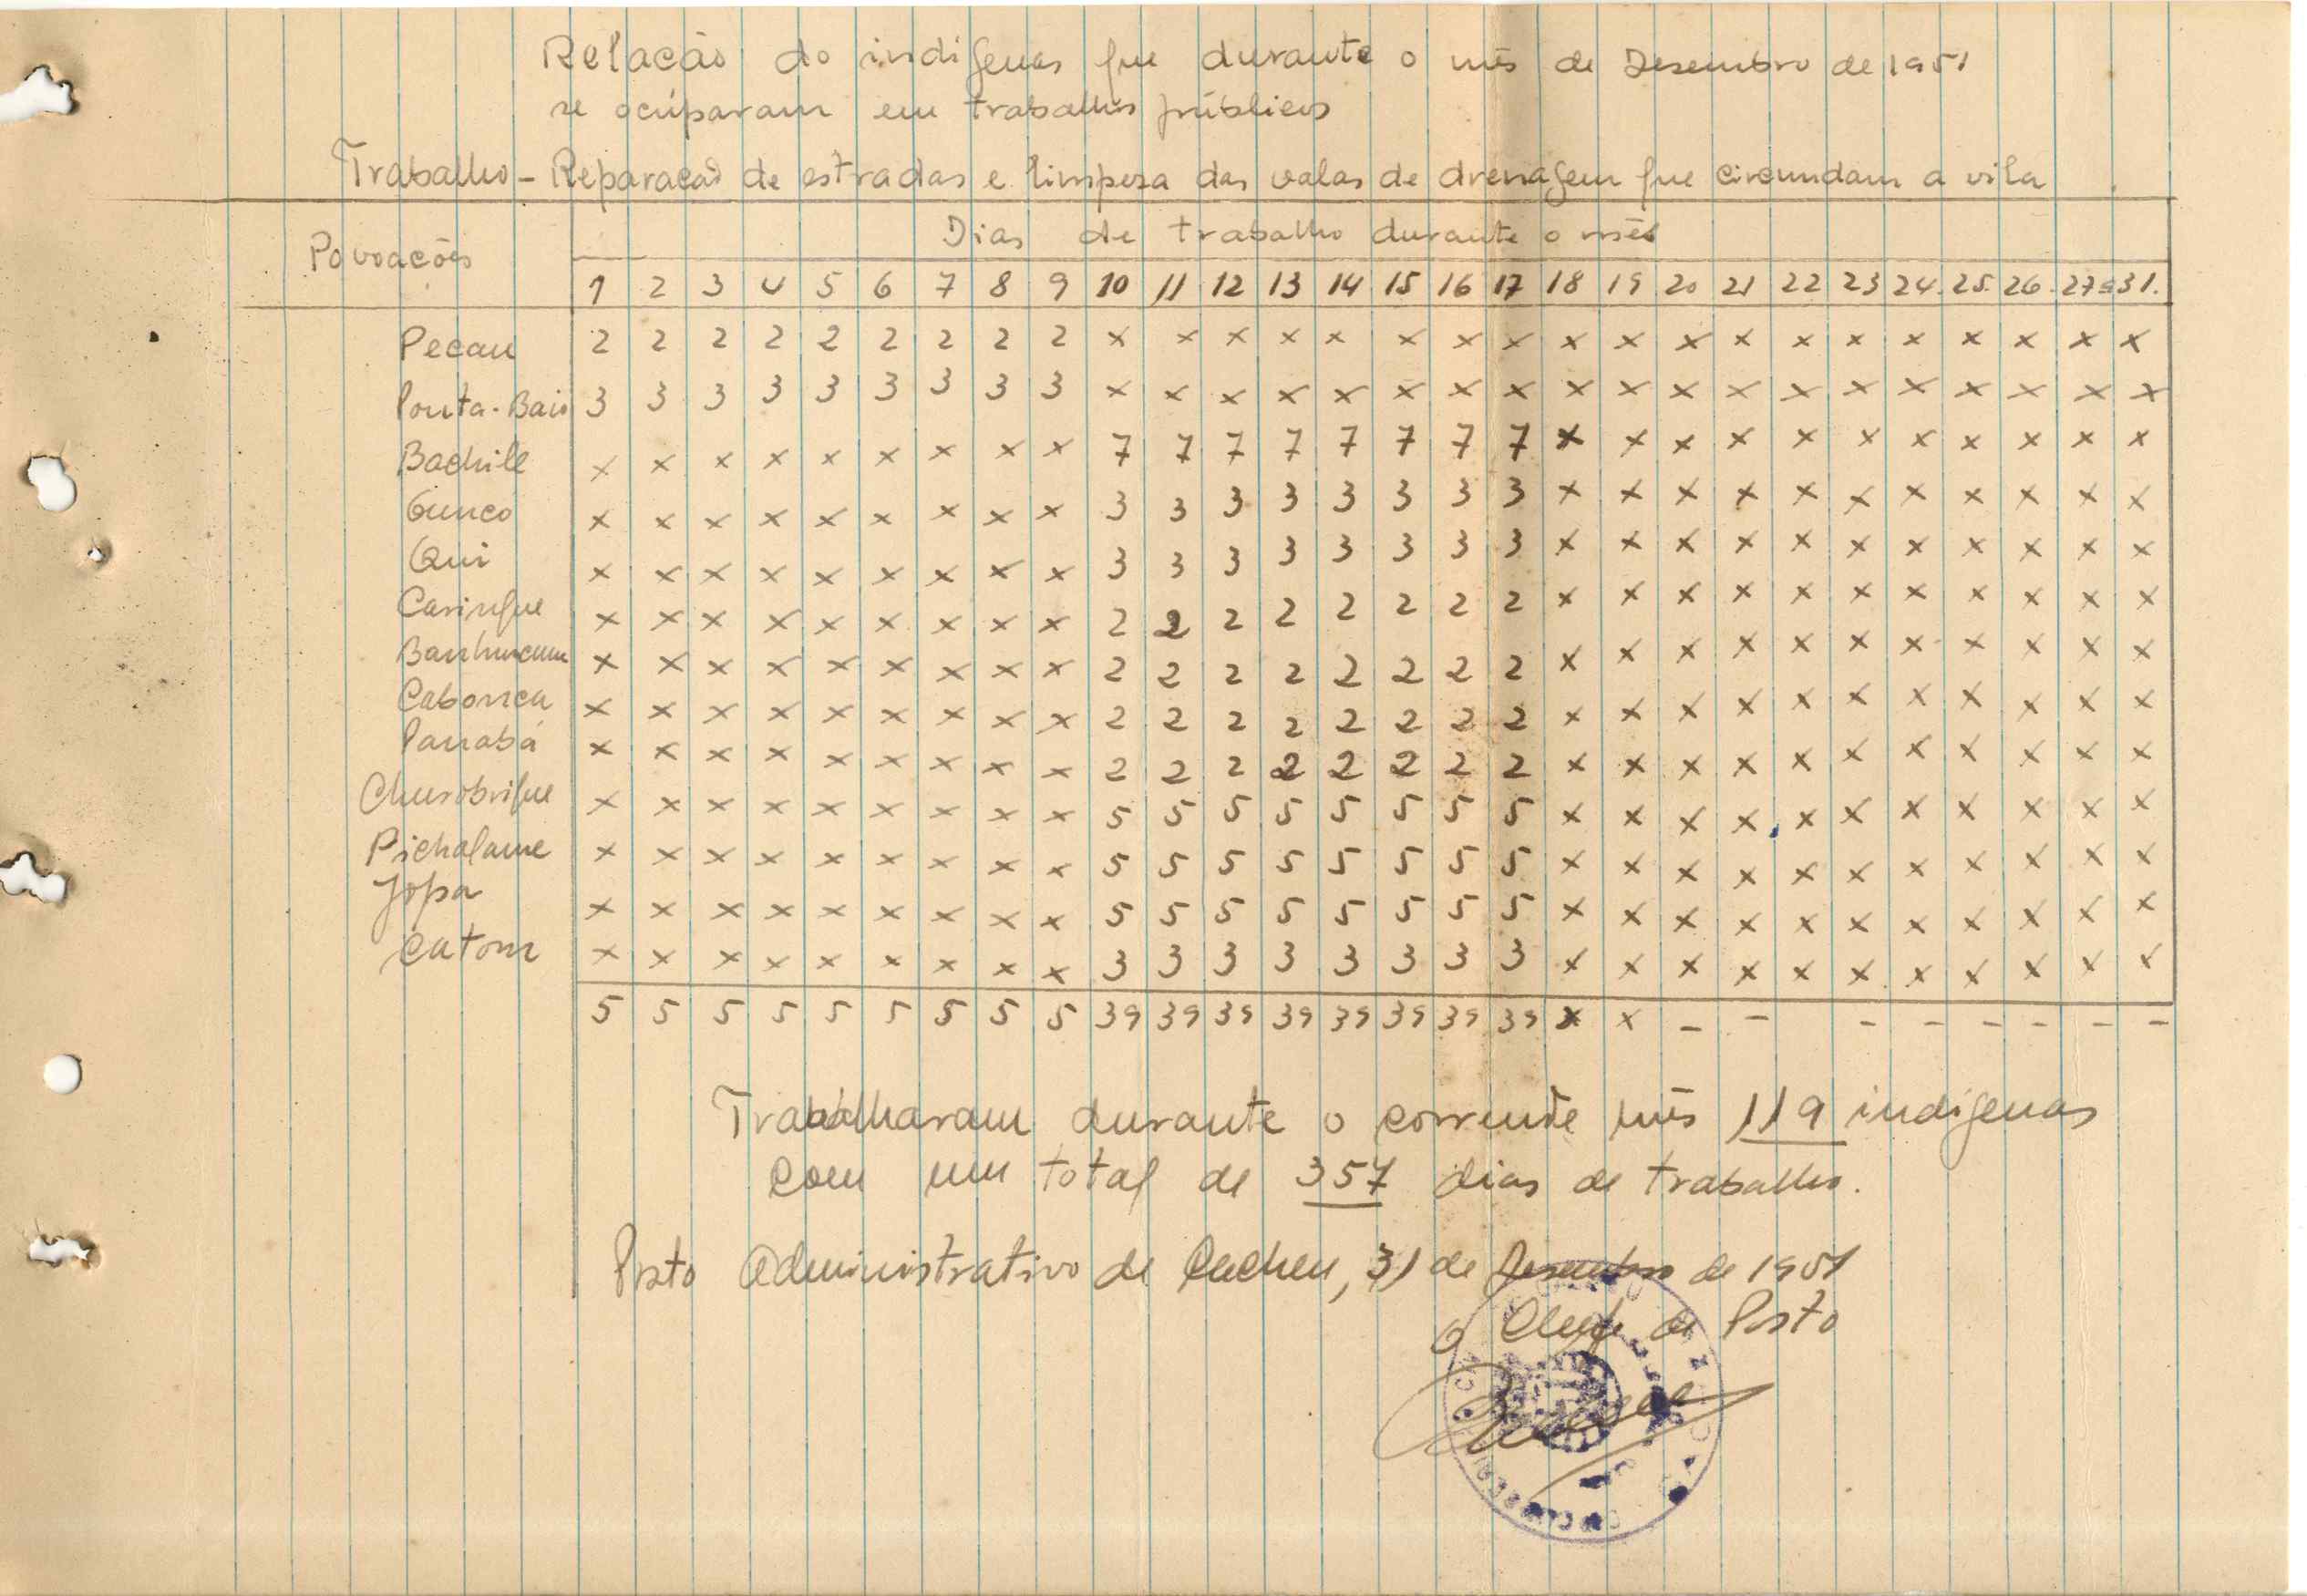 Relação do indígenas que durante o mês de Desembro de 1951
se ocúparam em trabalhos públicos
Trabalho - Reparação de estradas e limpesa das valas de drenagem que circundam a vila
Povoações Dias de trabalho durante o mês
1 2 3 4 5 6 7 8 9 10 11 12 13 14 15 16 17 18 19 20 21 22 23 24. 25. 26. 27 a 31.
Pecau 2 2 2 2 2 2 2 2 2 x x x x x x x x x x x x x x x x x x x
Ponta-Baio 3 3 3 3 3 3 3 3 3 x x x x x x x x x x x x x x x x x x x
Bachile x x x x x x x x x 7 7 7 7 7 7 7 7 x x x x x x x x x x x
Gunco x x x x x x x x x 3 3 3 3 3 3 3 3 x x x x x x x x x x x
Qui x x x x x x x x x 3 3 3 3 3 3 3 3 x x x x x x x x x x x
Caringue x x x x x x x x x 2 2 2 2 2 2 2 2 x x x x x x x x x x x
x x x x x x x x x 2 2 2 2 2 2 2 2 x x x x x x x x x x x
Cabonca x x x x x x x x x 2 2 2 2 2 2 2 2 x x x x x x x x x x x
Panabá x x x x x x x x x 2 2 2 2 2 2 2 2 x x x x x x x x x x x
Churobrique x x x x x x x x x 5 5 5 5 5 5 5 5 x x x x x x x x x x x
Pichalame x x x x x x x x x 5 5 5 5 5 5 5 5 x x x x x x x x x x x
Jopa x x x x x x x x x 5 5 5 5 5 5 5 5 x x x x x x x x x x x
Catom x x x x x x x x x 3 3 3 3 3 3 3 3 x x x x x x x x x x x
5 5 5 5 5 5 5 5 5 39 39 39 39 39 39 39 39 x x - - - - - - - -
Trabalharam durante o corrente mês 119 indígenas
com um total de 357 dias de trabalho.
Posto Administrativo de Cacheu, 31 de Desembro de 1951
O Chefe de Posto